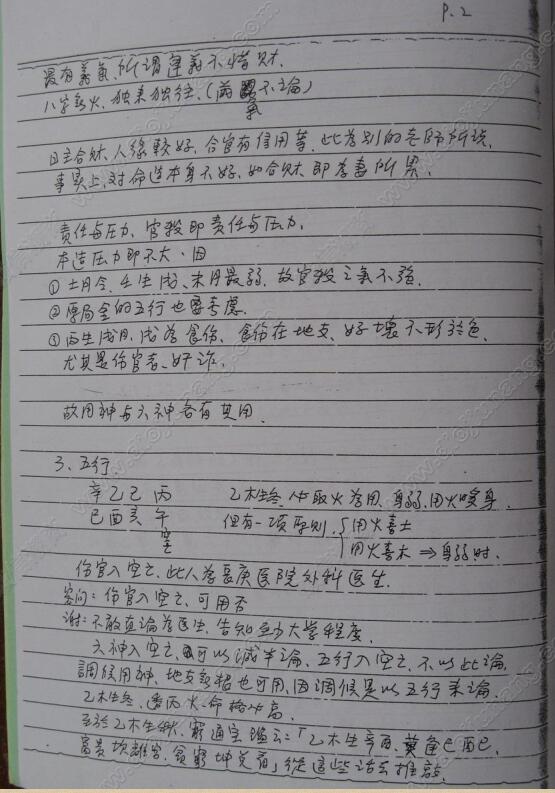 P.2
最有義氣,所謂重義不惜財.
八字缺火,獨來獨往.(滿 不論)
氣
日主合財,人緣較好,合官有信用等,此为別的老師所說,
事實上,对命造本身不好,如合財,即为妻所累.
責任与压力,官殺即責任与压力.
本造压力即不大,因
①土月令,土生浅,未月最弱,故官殺之氣不強.
②原局金的五行也要考慮.
③丙生浅月,浅为食伤,食伤在地支,好壞不形於色,
尤其是伤官者,奸诈.
故用神与六神各有其用.
3、五行.
辛乙己丙 乙木生冬,必取火为用,身弱,用火暖身.
巳酉亥午 但有一项原則 用火喜土
空 用火喜木 ⇒ 身弱时.
伤官入空亡,此人为長庚医院外科医生.
客问:伤官入空亡,可用否
谢:不敢直論为医生,告知至少大学程度.
六神入空亡,可以減半論,五行入空亡,不以此論,
調候用神,地支 根也可用,因調候是以五行來論.
乙木生冬,透丙火,命格必高.
至於乙木生秋,窮通宝鑑云:「乙木生辛酉,莫逢巳酉丑,
富貴坎離宮,貧窮坤兌宮」從這些话去推敲.
www.dajunang.com